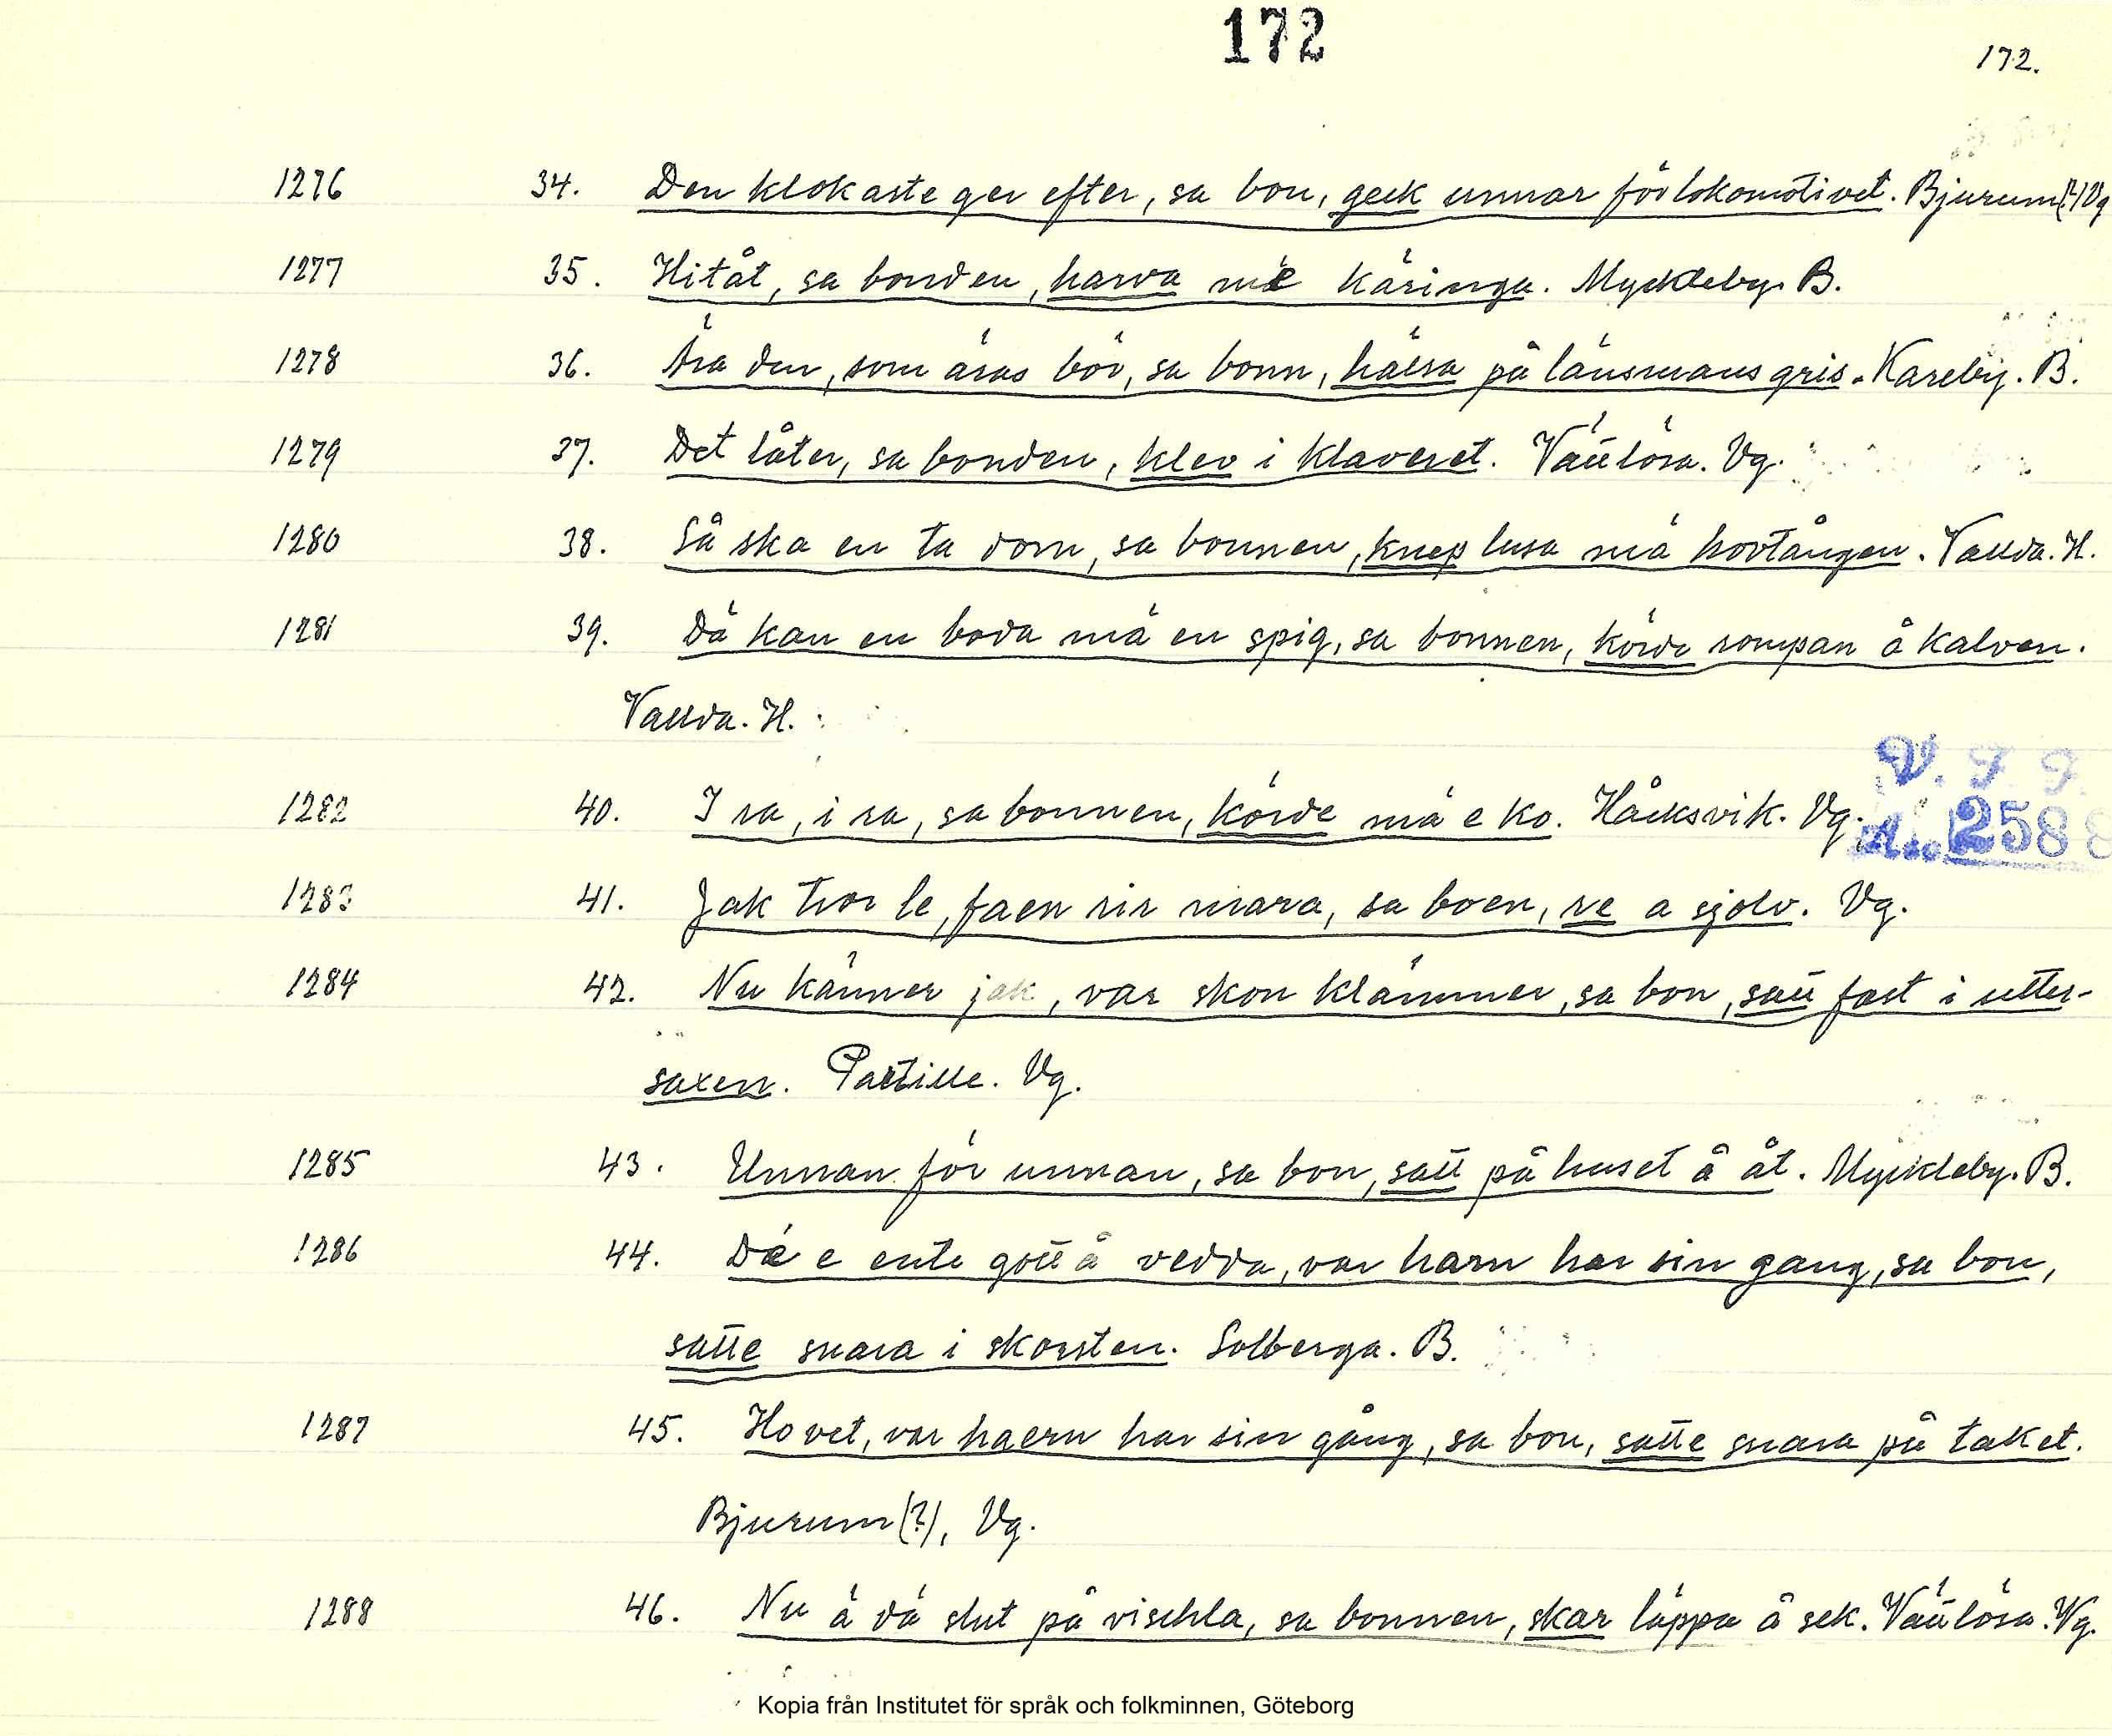 172
172.
1276 34. Den klokaste ger efter, sa bon, geck unnar för lokomotivet. Bjurum(?) Vg
1277 35. Hitåt, sa bonden, harva mä käringa. Myckleby. B.
1278 36. Ära den, som äras bör, sa bonn, hälsa på länsmans gris. Kareby. B.
1279 37. Det låter, sa bonden, klev i klaveret. Vättlösa. Vg.
1280 38. Så ska en ta dom, sa bonnen, knep lusa mä hovtången. Vallda. H.
1281 39. Dä kan en boda mä en spig, sa bonnen, körde rompan å kalven.
Vallda. H.
1282 40. I ra, i ra, sa bonnen, körde mä e ko. Håcksvik. Vg.
V. F. F.
Acc. 2588
1283 41. Jak tror le, faen rir mara, sa boen, re a sjolv. Vg.
1284 42. Nu känner jak, var skon klämmer, sa bon, satt fast i utter-
saxen. Partille. Vg.
1285 43. Unnan för unnan, sa bon, satt på huset å åt. Myckleby. B.
1286 44. Dä e ente gott å vedda, var harn har sin gang, sa bon,
satte snara i skorsten. Solberga. B.
1287 45. Ho vet, var haern har sin gång, sa bon, satte snara på taket.
Bjurum(?), Vg.
1288 46. Nu ä dä slut på vischla, sa bonnen, skar läppa å sek. Vättlösa. Vg.
Kopia från Institutet för språk och folkminnen, Göteborg